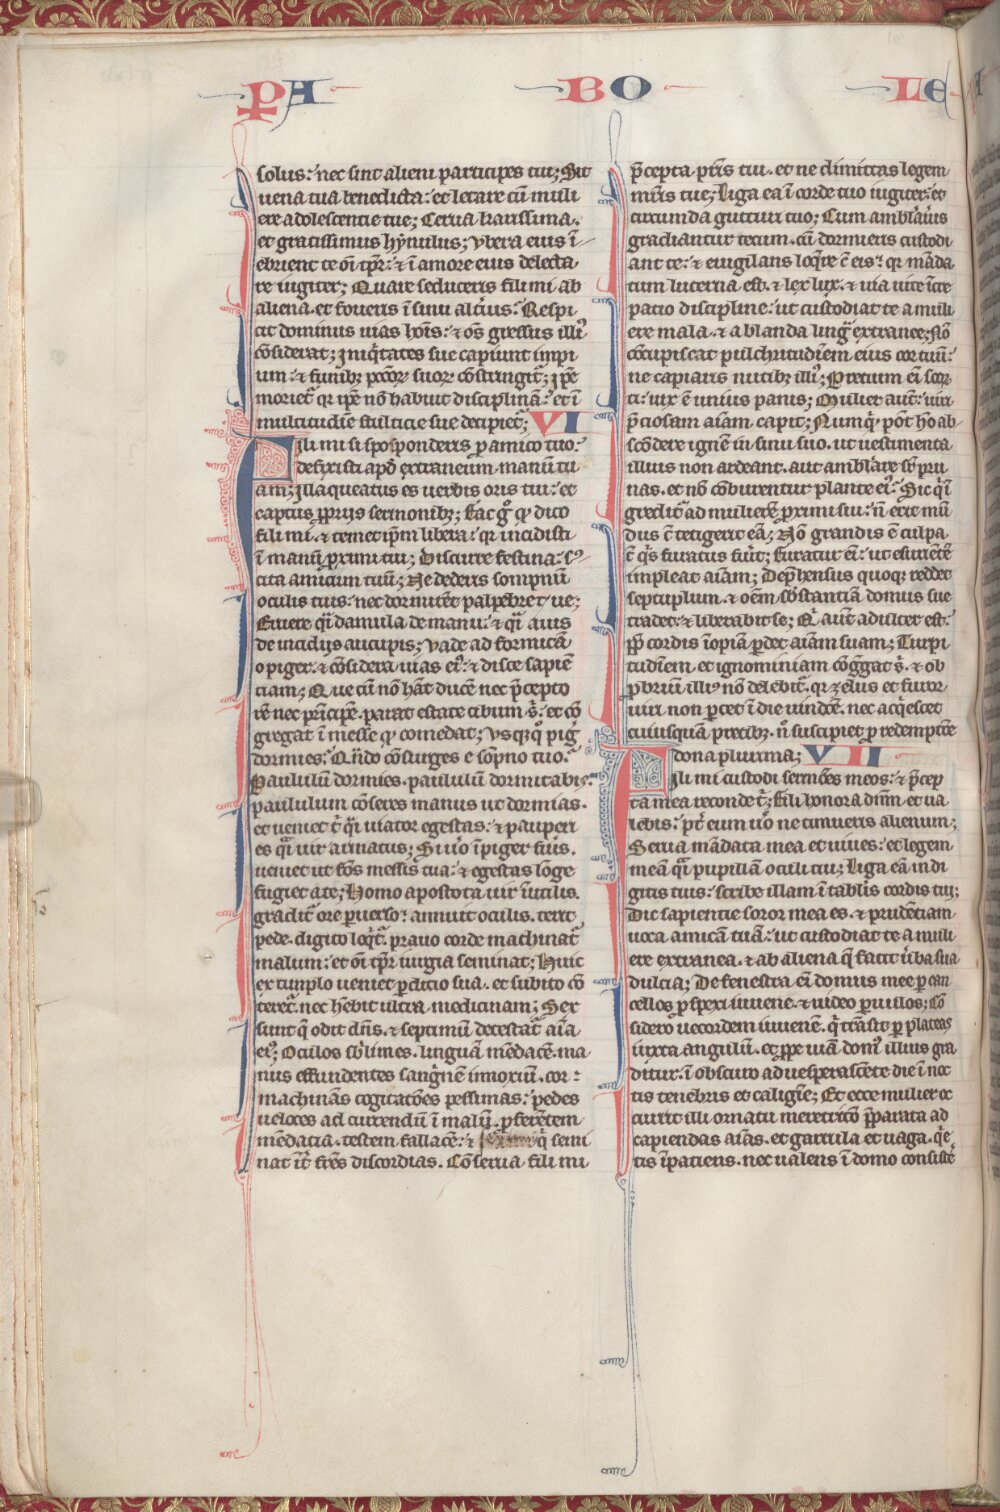 PA BO LE
solus: nec sint alieni participes tui; Sit
uena tua benedicta: et letare cū muli
ere adolescentie tue; Cerua karissima.
et gratissimus hynulus; Vbera eius ī
ebrient te oī tp̄r: ⁊ ī amore eius delecta
re iugiter; Quare seduceris fili mi ab
aliena. et foueris ī sinu alt̄ius: Respi
cit dominus uias hoīs: ⁊ oēs gressus illi᾿
cōsiderat; iniq̄tates sue capiunt impi
um: ⁊ funibꝫ pccōꝝ suoꝝ cōstringit᷑; ip̄e
moriet᷑ qꝛ ip̄e nō habuit disciplinā: et ī
multitudīe stulticie sue decipiet᷑; VI
Fili mi si sposponderis ꝓ amico tuo:
defixisti apd̄ extraneum manū tu
am; illaqueatus es uerbis oris tui: et
captus ꝓprijs sermonibꝫ; Fac gͦ qͩ dico
fili mi. ⁊ temet ip̄m libera: qꝛ incidisti
ī manū ꝓximi tui; Discurre festina: su
cita amicum tuū; Ne dederis sompnū
oculis tuis: nec dormitēt palpebre tue;
Eruere qͣi damula de manu: ⁊ qͣi auis
de incidijs aucupis; Vade ad formicā
o piger: ⁊ cōsidera uias ei᾿: ⁊ disce sapiē
ciam; Que cū nō hāt ducē nec p̄cepto
rē nec prīcipē. parat estate cibum s̄: et cō
gregat ī messe qͩ comedat; Vsqꝫqͦ pig̃
dormies: Qn̄do cōsurges e sōpno tuo:
Paululū dormies. paululū dormitabis:
paululum cōseres manus ut dormias.
et ueniet t̄ qͣi uiator egestas: ⁊ pauperi
es qͣi uir armatus; Si uͦ īpiger fūis.
ueniet ut fōs messis tua: ⁊ egestas lōge
fugiet a te; Homo apostota uir īutilis.
gradit᷑ ore ꝑuerso: annuit oculis. terit
pede. digito loq̄t᷑. prauo corde machinat᷑
malum: et oī tp̄r iurgia seminat; Huic
extimplo ueniet ꝑditio sua. et subito cō
teret᷑. nec hēbit ultra medicinam; Sex
sunt q̄ odit dn̄s. ⁊ septimū detestat᷑ aīa
ei᾿; Oculos sb̄limes. linguā mēdacē. ma
nus effundentes sangnē innoxiū. cor:
machinās cogitatōes pessimas: pedes
ueloces ad currendū ī malū. ꝓferētem
mēdatia. testem fallacē: ⁊ q̄ semi
nat īt̄ frēs discordias. Cōserua fili mi
p̄cepta p̄ris tui. et ne dimittas legem
mr̄is tue; Liga ea ī corde tuo iugiter: et
circumda gutturi tuo; Cum amblāuis
gradiantur tecum. cū dormieris custodi
ant te: ⁊ euigilans loq̄re cū eis: qꝛ māda
tum lucerna est. ⁊ lex lux. ⁊ uia uite īcre
patio discipline: ut custodiat te a muli
ere mala. ⁊ a blanda ling̃ extranee; Nō
cōcupiscat pulchritudīem eius cor tuū:
ne capiaris nutibꝫ illi᾿; Pretium eī scor
ti: uix ē unius panis; Mulier aut̄: uiri
p̄ciosam aīam capit; Numqͥd pōt hō ab
scōdere ignē in sinu suo. ut uestimenta
illius non ardeant. aut amblāre sr̄ pru
nas. et nō cōburentur plante ei᾿: Sic qͥ ī
gredit᷑ ad mulierē ꝓximi sui: n̄ erit mū
dus cū tetigerit eā; Nō grandis ē culpa
cū qͥs furatus fūit; Furatur eī: ut esurientē
impleat aīam; Dep̄hensus quoqꝫ reddet
septuplum. ⁊ oēm sb̄stantiā domus sue
tradet: ⁊ liberabit se; Qͥ aut̄ adulter est:
ꝓp̄ cordis īopiā ꝑdet aīam suam; Turpi
tudīem et ignominiam cōg̃gat s̄. ⁊ ob
ꝓbriū illi᾿ nō delebit᷑. qꝛ zelus et furor
uiri non ꝑcet ī die uindcē. nec acqͥescet
cuiusquā precibꝫ. n̄ suscipiet ꝑ redemptōe
dona plurima; VII
Fili mi custodi sermōes meos: ⁊ p̄cep
ta mea reconde t̄; Fili honora dn̄m et ua
lebis: p̄t̄ eum uͦ ne timueris alienum;
Serua mādata mea et uiues: et legem
meā qͣi pupillā oculi tui; Liga eā in di
gitis tuis: scribe illam ī tablīs cordis tui;
Dic sapientie soror mea es. ⁊ prudētiam
uoca amicā tuā: ut custodiat te a muli
ere extranea. ⁊ ab aliena q̄ facit ūba sua
dulcia; De fenestra eī domus mee ꝑ can
cellos ꝓspexi iuuene. ⁊ uideo ꝑuulos; Cō
sidero uecordem iuuenē. qͥ trāsit ꝑ plateas
iuxta angulū. et ꝓpe uiā dom᾿ illius gra
ditur. ī obscuro aduesperascēte die ī noc
tis tenebris et caligīe; Et ecce mulier oc
currit illi ornatu meretricō p̄parata ad
capiendas aīas. et garrula et uaga. qͥe
tis īpatiens. nec ualens ī domo consistē